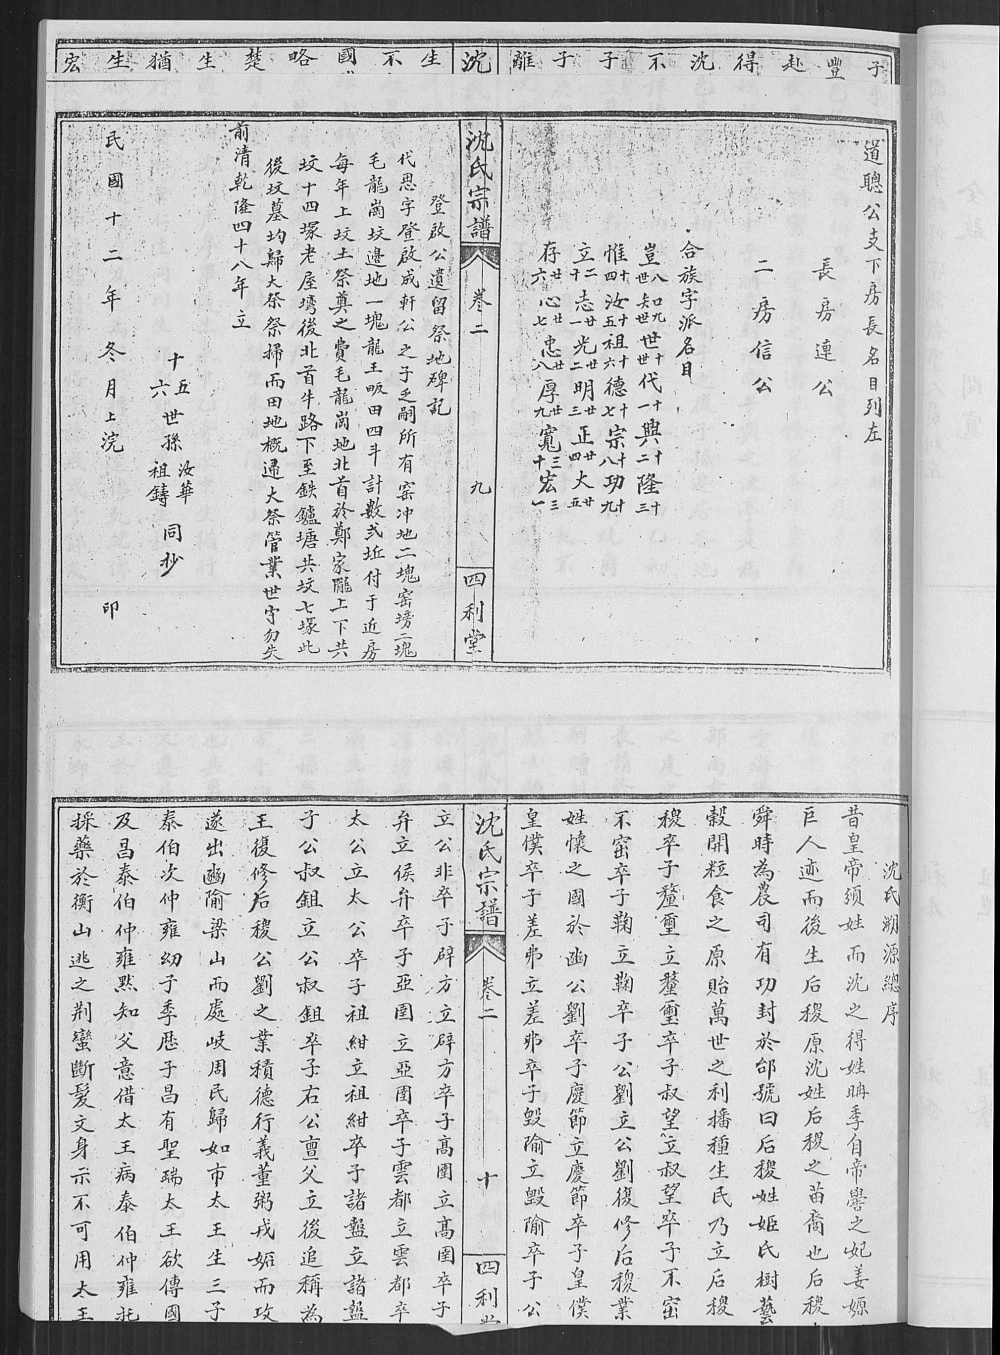 子豐赴得沈不子子離
沈
生不國略楚生猶生宏
道聰公支下房長名目列左
長房連公
二房信公
合族字派名目
豈八世知九世世十世代十一興十二隆十三
惟十四汝十五祖十六德十七宗十八功十九
立二十志廿一光廿二明廿三正廿四大廿五
存廿六心廿七忠廿八厚廿九寬三十宏三一
沈氏宗譜 卷二 九 四利堂
登啟公遺留祭地碑記
代思字登啟成軒公之子之嗣所有窑冲地二塊窑塝二塊
毛龍崗坟邊地一塊龍王畈田四斗計數弍坵付于近房
每年上坟土祭奠之費毛龍崗地北首於鄭家隴上下共
坟十四塚老屋塆後北首牛路下至鉄鑪塘共坟七塚此
後坟墓均歸大祭祭掃而田地概歸大祭管業世守勿失
前清乾隆四十八年立
十五世孫汝華
十六世孫祖鑄
同抄
民國十二年冬月上浣 印
沈氏朔源總序
昔皇帝须姓而沈之得姓聃季自帝嚳之妃姜嫄
巨人迹而後生后稷原沈姓后稷之苗裔也后稷
舜時為農司有功封於邰號曰后稷姓姬氏樹藝
穀開粒食之原貽萬世之利播種生民乃立后稷
稷卒子釐璽立釐璽卒子叔望立叔望卒子不窋
不窋卒子鞠立鞠卒子公劉立公劉復修后稷業
姓懷之國於豳公劉卒子慶節立慶節卒子皇僕
皇僕卒子差弗立差弗卒子毀隃立毀隃卒子公
沈氏宗譜 卷二 十 四利堂
立公非卒子辟方立辟方卒子高圉立高圉卒子
弁立侯弁卒子亞圉立亞圉卒子雲都立雲都卒
太公立太公卒子祖紺立祖紺卒子諸盩立諸盩
子公叔鉏立公叔鉏卒子右公亶父立後追稱為
王復修后稷公劉之業積德行義董粥戎姤而攻
遂出豳隃梁山而處岐周民歸如市太王生三子
泰伯次仲雍幼子季歷子昌有聖瑞太王欲傳國
及昌泰伯仲雍黙知父意借太王病泰伯仲雍託
採藥於衡山逃之荆蠻斷髮文身示不可用太王